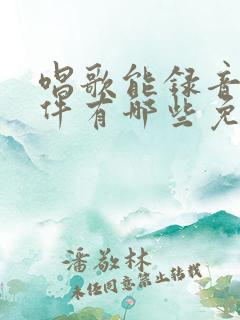 唱歌能录音
件有哪些免
潘敬林
未经同意禁止转载